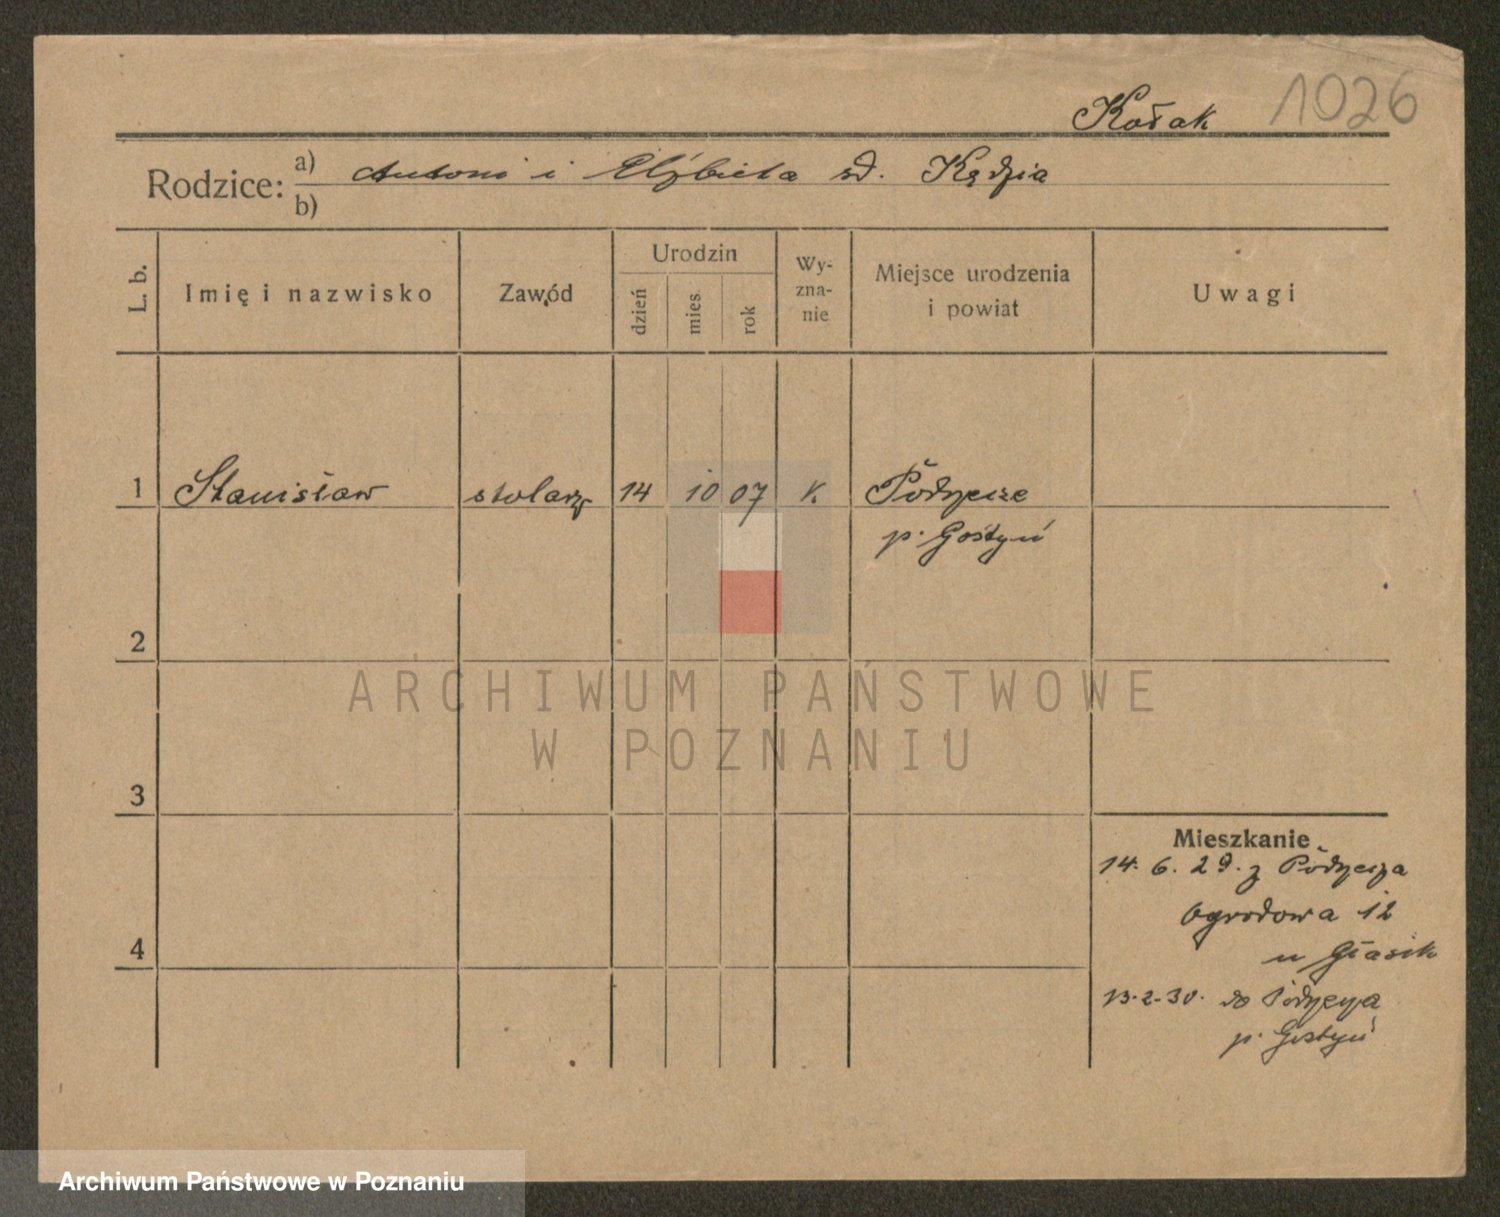 1026
Kołak
Rodzice: a) Antoni i Elżbieta zd. Kędzia
b)
L. b.
Imię i nazwisko
Zawód
Urodzin
dzień
mies.
rok
Wy-
zna-
nie
Miejsce urodzenia
i powiat
Uwagi
1 Stanisław stolarz 14 10 07 K.
p. Gostyń
2
ARCHIWUM PAŃSTWOWE
W POZNANIU
3
Mieszkanie
14. 6. 29. z
Ogrodowa 12
4
u Głasik
13.2.30. do
p. Gostyń
Archiwum Państwowe w Poznaniu